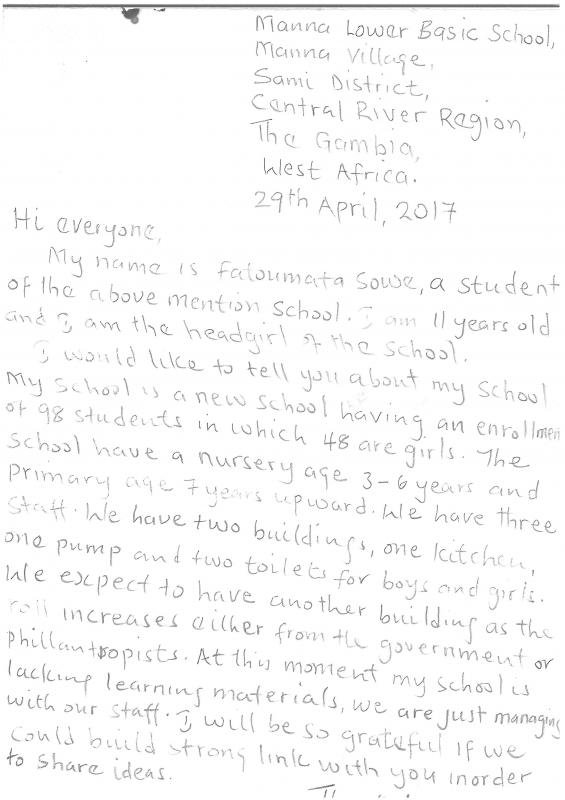 Manna Lower Basic School,
Manna Village,
Sami District,
Central River Region,
The Gambia,
West Africa.
29th April, 2017
Hi everyone,
My name is Fatoumata Sowe, a student
of the above mention School. I am 11 years old
and I am the headgirl of the school.
I would like to tell you about my School
My School is a new school having an enrollmen
of 98 students in which 48 are girls. The
School have a nursery age 3-6 years and
primary age 7 years upward. We have three
Staff. We have two buildings, one kitchen,
one pump and two toilets for boys and girls.
We expect to have another building as the
roll increases either from the government or
phillantropists. At this moment my school is
lacking learning materials, we are just managing
with our staff. I will be so grateful if we
could build strong link with you inorder
to share ideas.